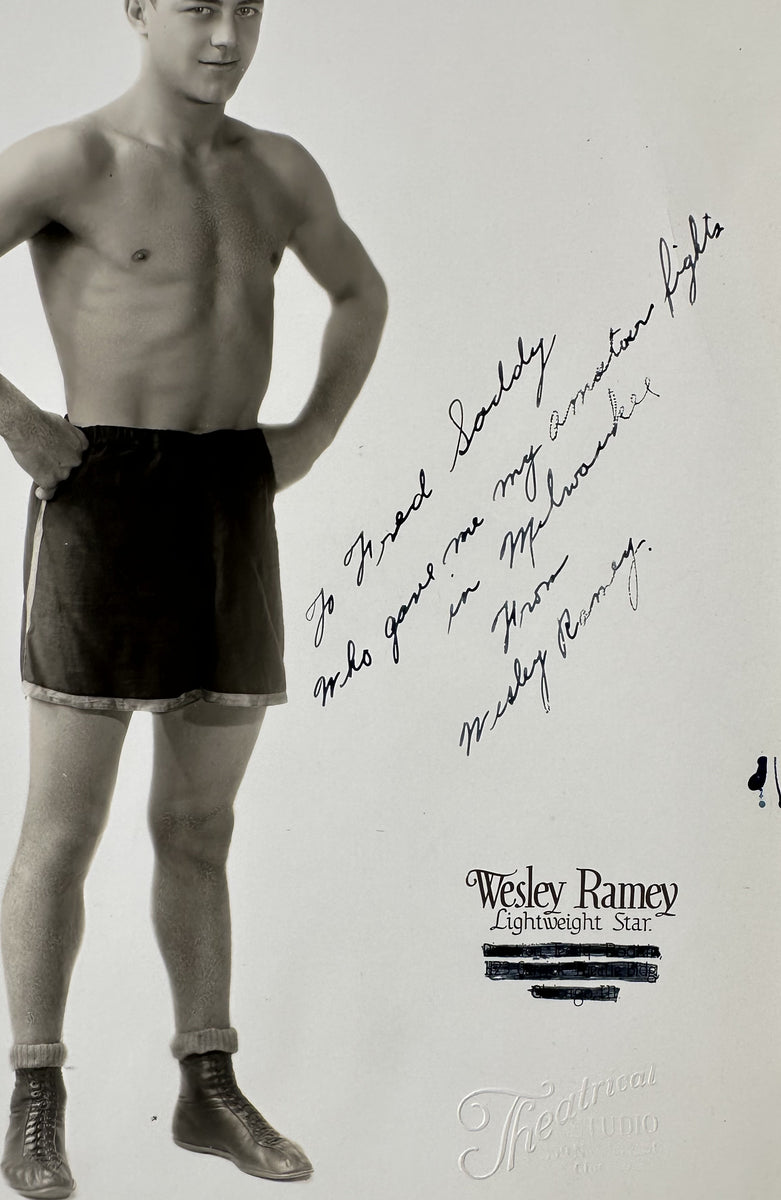 To Fred Saddy
Who gave me my amateur fights
in Milwaukee
From
Wesley Ramey.
Wesley Ramey
Lightweight Star.
Theatrical
STUDIO